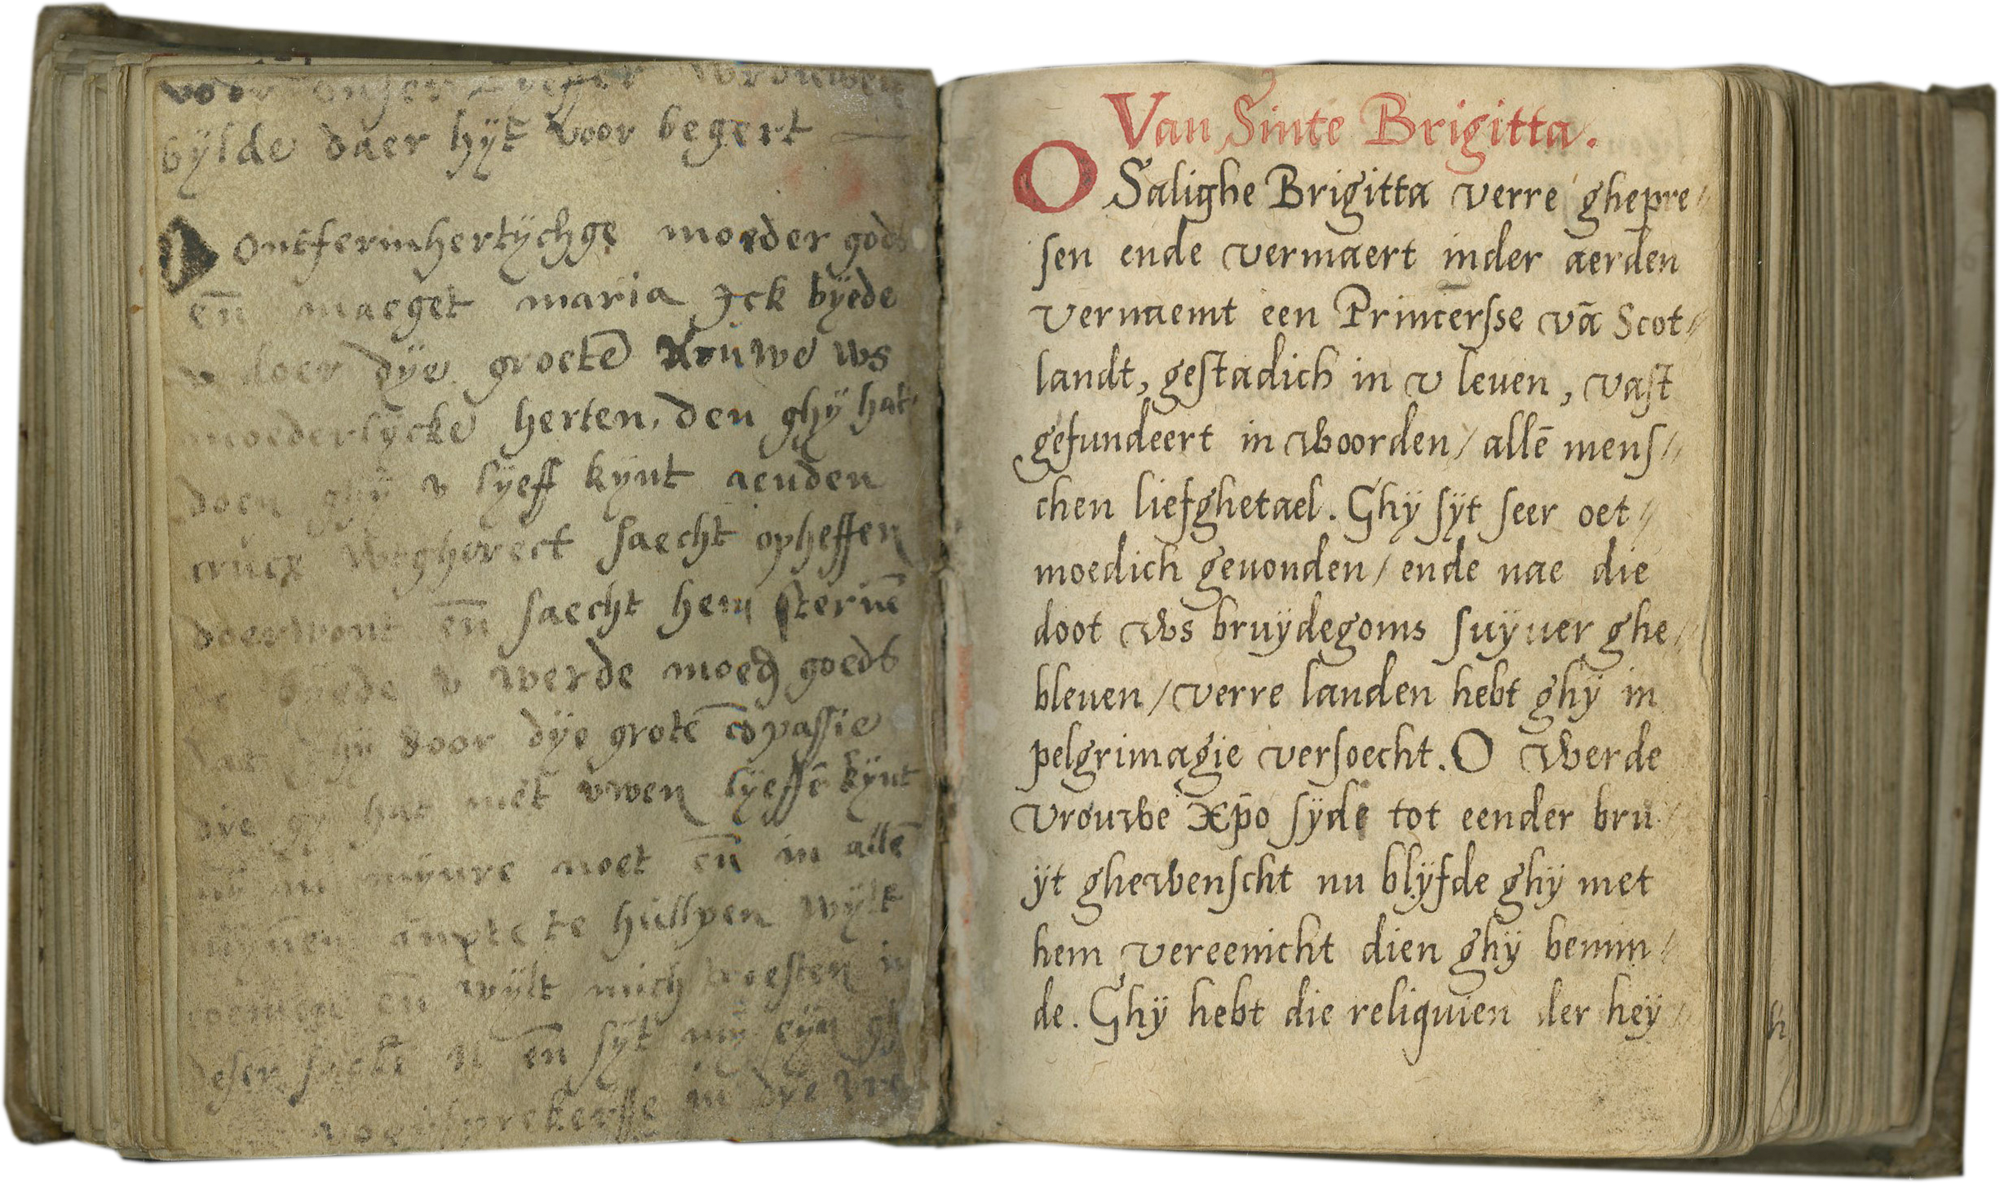 voor onser lyeffer vrouwen
bÿlde daer hÿt voor begert
O Ontfermhertÿchge moeder gods
en̄ maeget maria Jck bÿede
v doer dÿe groete rouwe ws
moederlÿcke herten, den ghÿ hat
doen ghÿ v lÿeff kÿnt aenden
cruce saecht opheffen
doerwont en̄ saecht hem steruē
bÿede v werde moed goeds
dat ghÿ door dÿe grotē cōpassie
die gÿ hat met vwen lÿeffē kÿnt
mÿ in mÿnre noet en̄ in allē
mÿnen anxte te hullpen wÿlt
en̄ wÿlt mich troesten in
deser en̄ sÿt mÿ eÿn
in dre
Van Sinte Brigitta.
O Salighe Brigitta verre ghepre⸗
sen ende vermaert inder aerden
vernaemt een Princersse vā Scot⸗
landt, gestadich in v leuen, vast
gefundeert in woorden/ allē mens⸗
chen liefghetael. Ghÿ sÿt seer oet⸗
moedich geuonden/ ende nae die
doot ws bruÿdegoms suÿuer ghe⸗
bleuen/ verre landen hebt ghÿ in
pelgrimagie versoecht. O werde
vrouwe xp̄o sÿde tot eender bru⸗
ÿt ghewenscht nu blÿfde ghÿ met
hem vereenicht dien ghÿ bemin⸗
de. Ghÿ hebt die reliquien der heÿ⸗